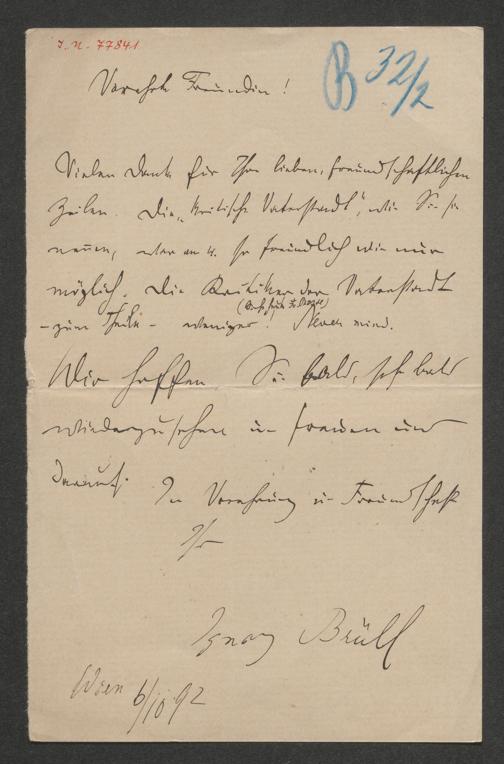 I. N. 77841
B 32/2
Verehrte Freundin!
Vielen Dank für Ihre lieben, freundschaftlichen
Zeilen. Die „kritische Vaterstadt", wie Sie sie
nennen, war am 4. so freundlich wie nur
möglich. Die Kritiker der Vaterstadt
– zum Theile – weniger!
Wir hoffen, Sie bald, sehr bald
wiederzusehen u. freuen uns
darauf.
In Verehrung u. Freundschaft
Ihr
Ignaz Brüll
Wien 6/10 92